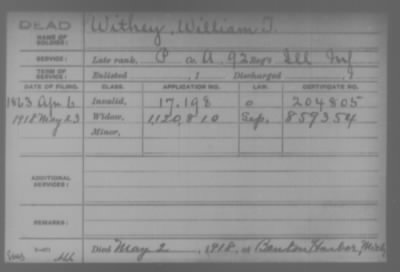 DEAD
NAME OF SOLDIER:
Withey, William T.
SERVICE:
Late rank, P Co. A, 92 Reg't Ill Inf
TERM OF SERVICE:
Enlisted , 1 Discharged , 1
DATE OF FILING. CLASS. APPLICATION NO. LAW. CERTIFICATE NO.
1863 Apr 6 Invalid, 17.198 o 204805
1918 May 23 Widow, 1,120,810 Sep. 859354
Minor,
ADDITIONAL SERVICES:
REMARKS:
Died May 2, 1918, at Benton Harbor, Mich